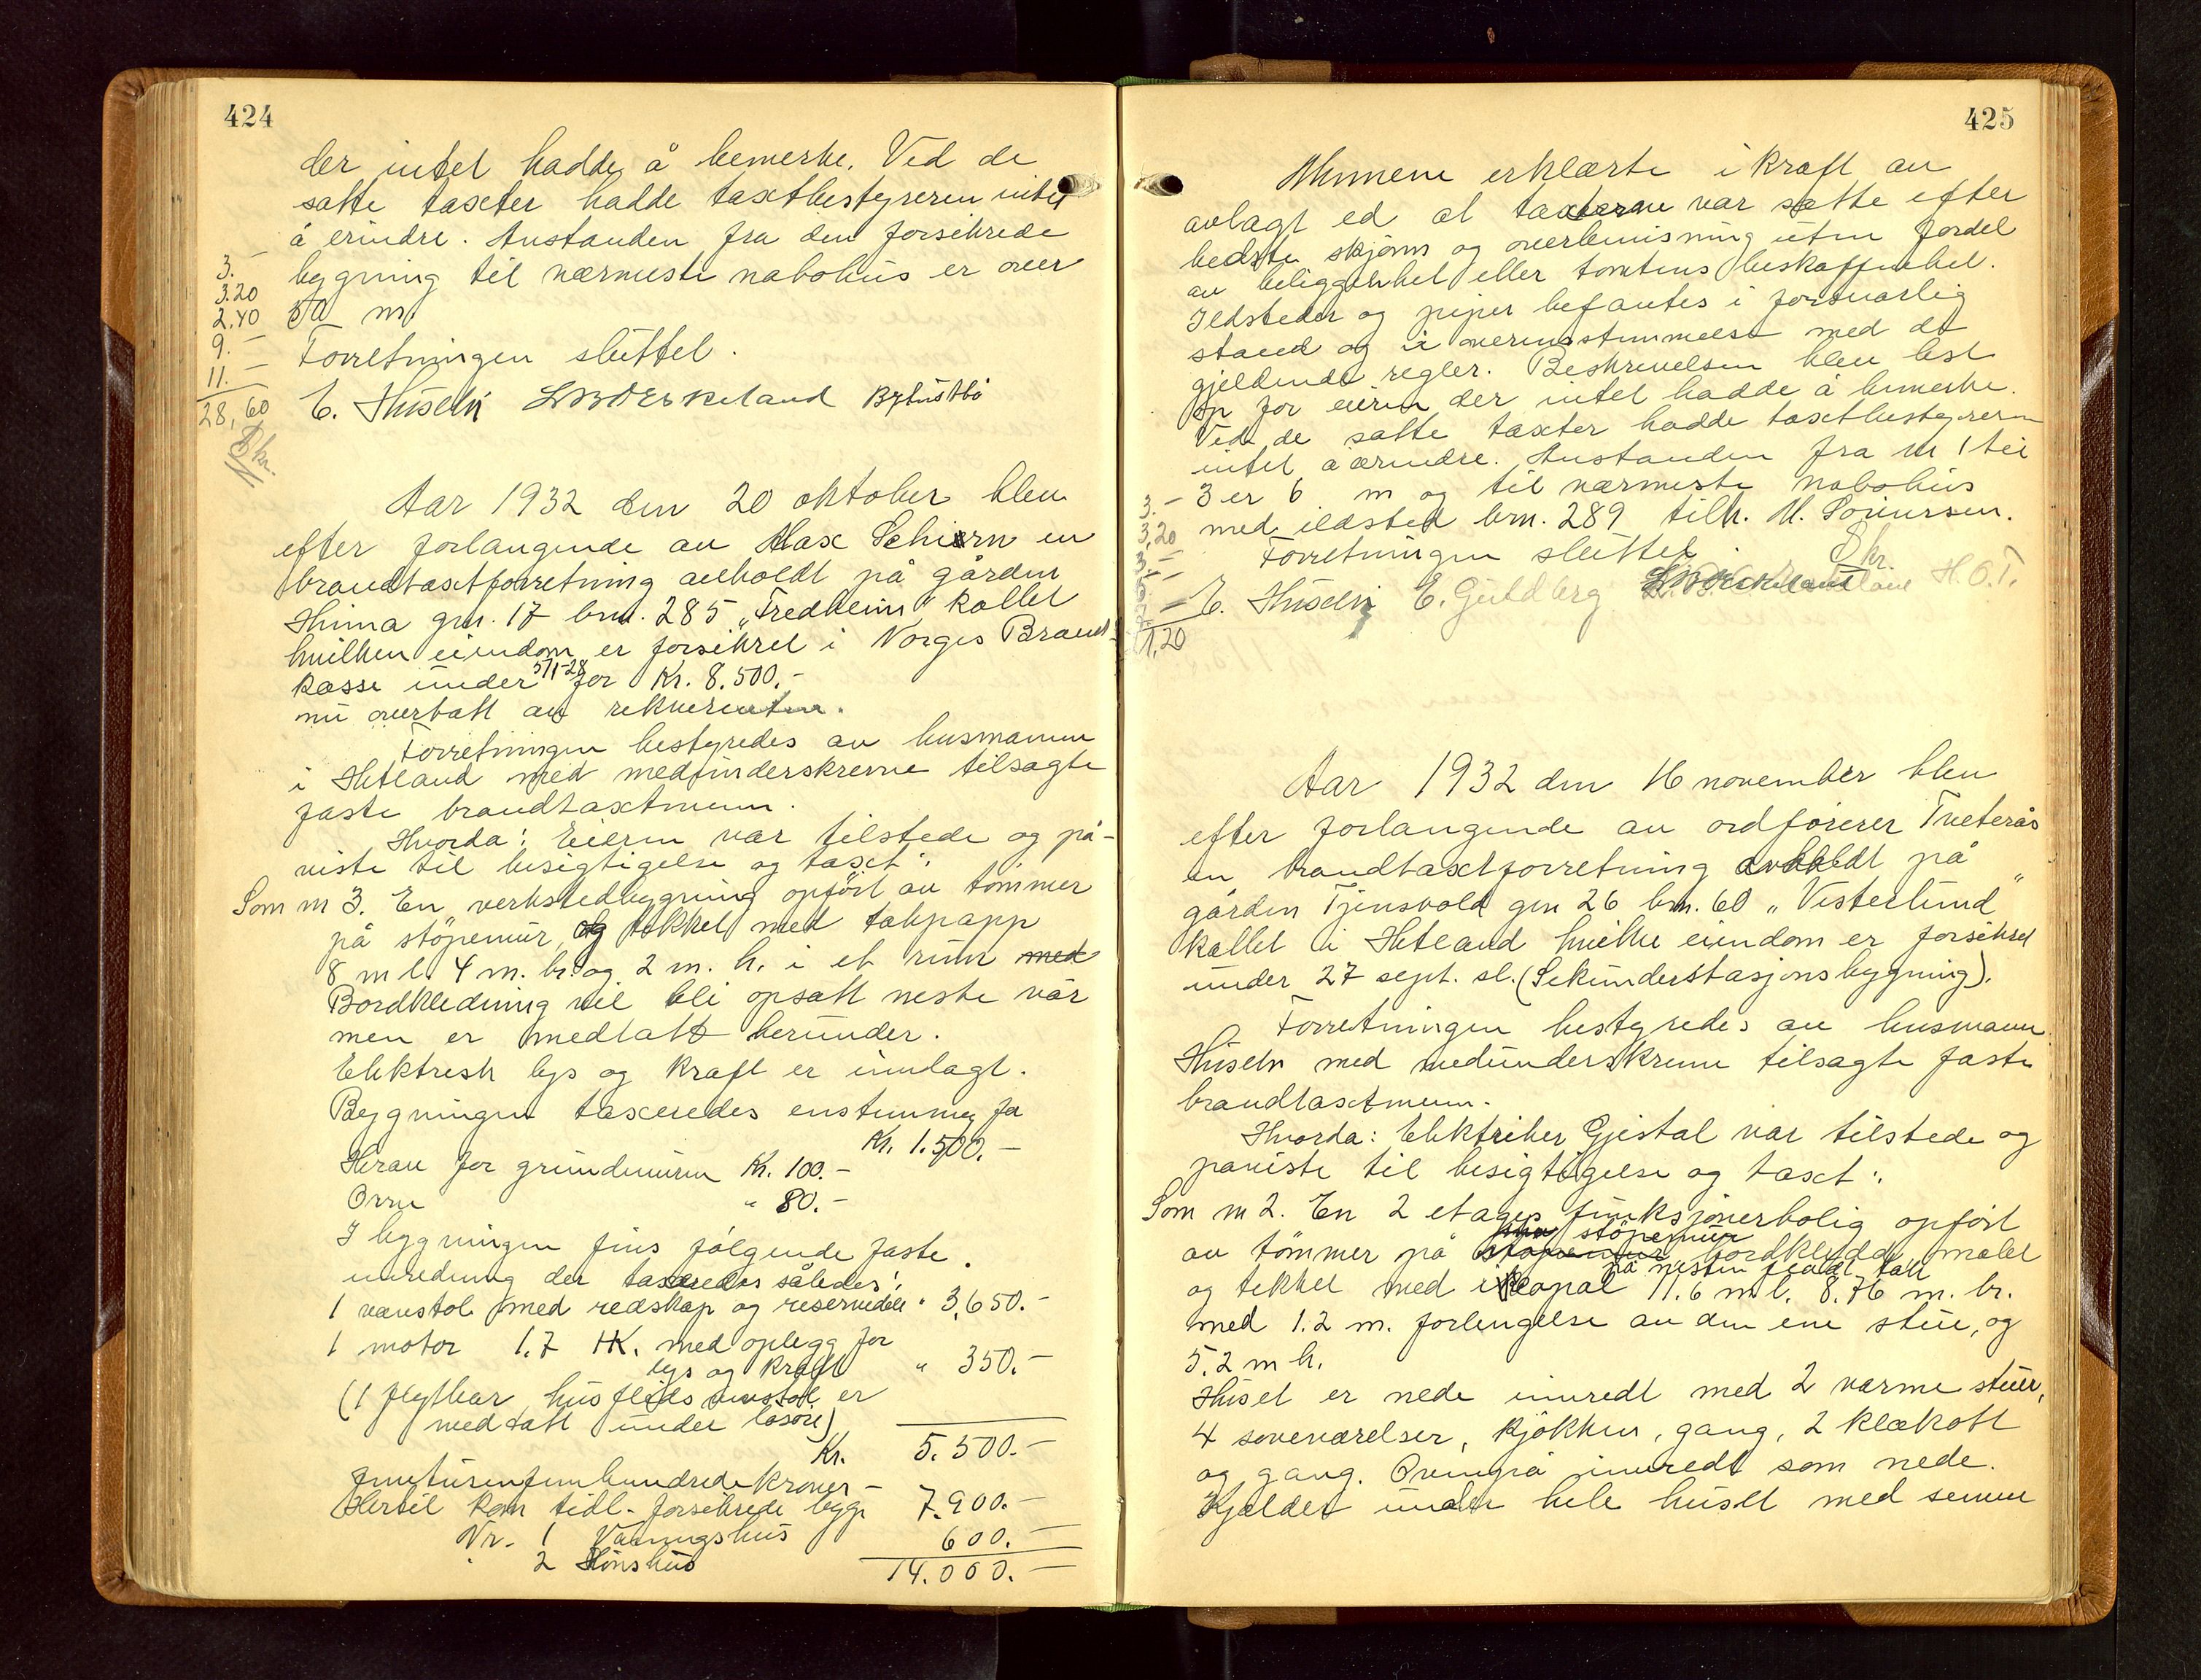 424
der intet hadde å bemerke. Ved de
satte taxter hadde taxtbestyreren intet
å erindre. Avstanden fra den forsikrede
bygning til nærmeste nabohus er over
50 m.
Forretningen sluttet.
E. Huseby
3.-
3.20
2.40
9.-
11.-
28,60
Skr.
Aar 1932 den 20 oktober blev
efter forlangende av Max Schiørn en
brandtaxtforretning avholdt på gården
Hinna gnr. 17 brn. 285 „Fredheim" kallet
hvilken eiendom er forsikret i Norges Brand-
kasse under 5/1-28 for Kr. 8.500.-
nu overtatt av rekvirenten.
Forretningen bestyredes av husmannen
i Hetland med medunderskrevne tilsagte
faste brandtaxtmenn.
Hvorda: Eieren var tilstede og på-
viste til besigtigelse og taxt:
Som m 3. En verkstedbygning opført av tømmer
på støpemur og tekket med takpapp
8 m l. 4 m. br. og 2 m. h. i et rum med
Bordkledning vil bli opsatt neste vår
men er medtatt herunder.
Elektrisk lys og kraft er innlagt.
Bygningen taxeredes enstemmig for
Kr. 1.500.-
Herav for grundmuren Kr. 100.-
Ovne " 80.-
I bygningen fins følgende faste
innredning der taxeredes således:
1 vævstol med redskap og reservedele " 3.650.-
1 motor 1.7 HK. med oplegg for
lys og kraft " 350.-
(1 flytbar husflids vevstol er
medtatt under løsøre)
Kr. 5.500.-
femtusenfemhundrede kroner -
Hertil kom tidl. forsikrede bygn.
Nr. 1 Våningshus 7.900.-
" 2 Hønshus 600.-
14.000.-
425
Mennene erklærte i kraft av
avlagt ed at taxterne var satte efter
bedste skjønn og overbevisning uten fordel
av beliggenhet eller tomtens beskaffenhet.
Ildsteder og piper befantes i forsvarlig
stand og i overensstemmelse med de
gjeldende regler. Beskrivelsen blev lest
op for eieren der intet hadde å bemerke.
Ved de satte taxter hadde taxtbestyreren
intet å ærindre. Avstanden fra m 1 til
3 er 6 m og til nærmeste nabohus
med ildsted brn. 289 tilh. M. Sørensen.
Forretningen sluttet.
Skr.
E. Huseby E. Guldberg H.O.T.
3.-
3,20
1,20
Aar 1932 den 16 november blev
efter forlangende av ordfører Tveterås
en brandtaxtforretning avholdt på
gården Tjensvold gnr 26 brn. 60 „Vesterlund"
kallet i Hetland hvilke eiendom er forsikret
under 27 sept. sl. (Sekunderstasjonsbygning).
Forretningen bestyredes av husmann
Huseby med medunderskrevne tilsagte faste
brandtaxtmenn.
Hvorda: Elektriker Gjestal var tilstede og
paviste til besigtigelse og taxt:
Som m 2. En 2 etages funksjonerbolig opført
støpemur
av tømmer på støpemur bordkledd malet
på nesten fladt tak
og tekket med 11.6 m l. 8.76 m. br.
med 1.2 m. forlengelse av den ene stue, og
5.2 m h.
Huset er nede innredt med 2 varme stuer,
4 soveværelser, kjøkken, gang, 2 klækott
og gang. Ovenpå innredt som nede.
Kjelder under hele huset med sement